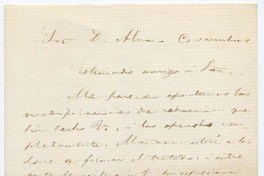 Sor. D. Alvaro Covarrubias
Estimado amigo i Sor.
Me parecen oportunas las
modificaciones de redaccion que
ha hecho V., i las apruebo com-
pletamente. Mañana estaré a las
doce a firmar el tratado, i entre